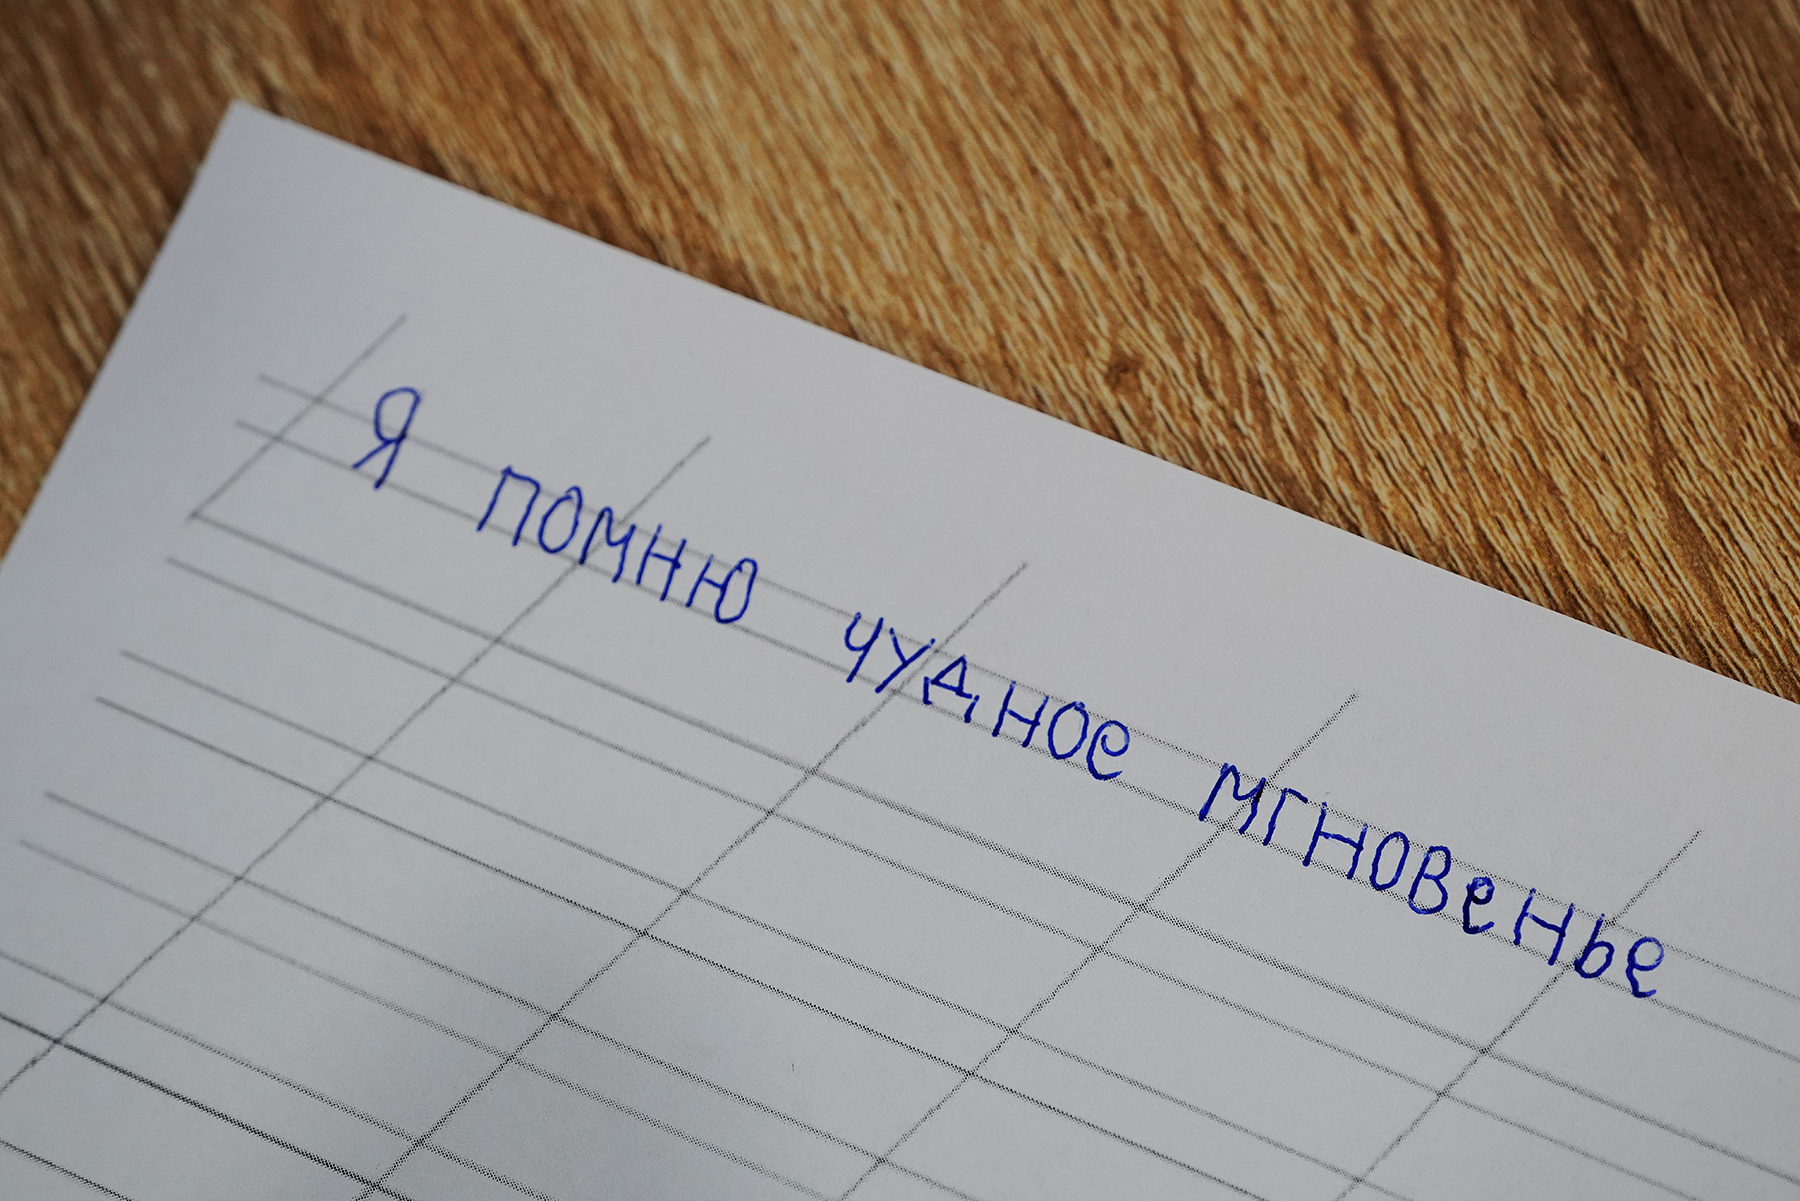 Я помню чудное мгновенье